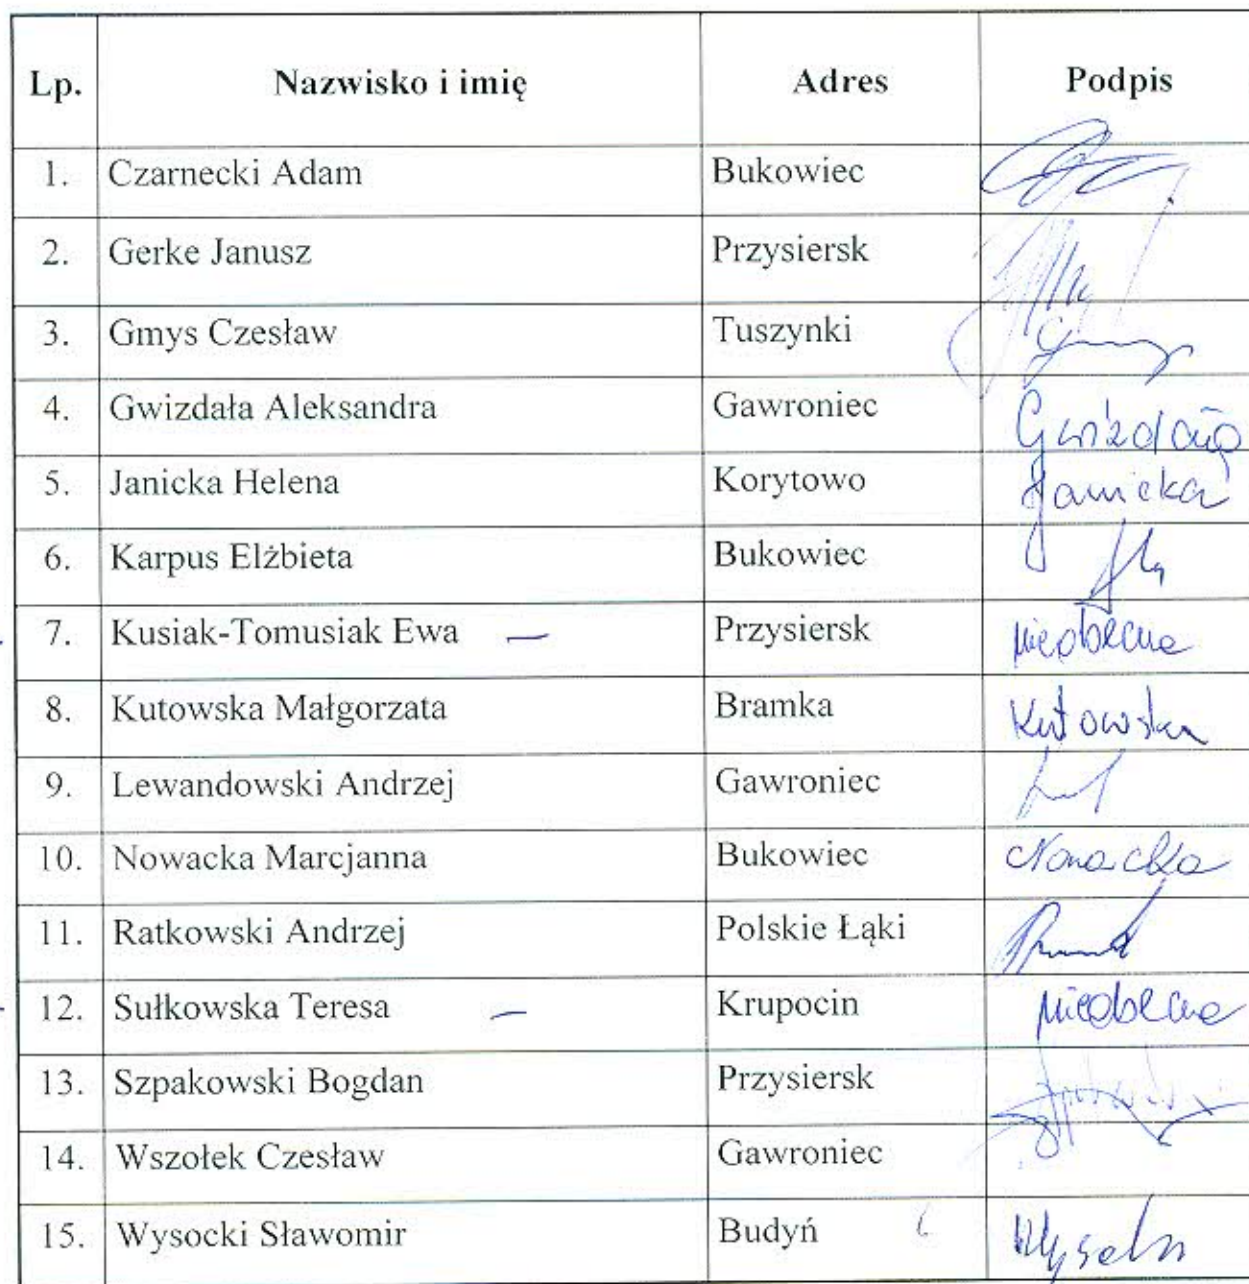 Lp. Nazwisko i imię Adres Podpis
1. Czarnecki Adam Bukowiec
2. Gerke Janusz Przysiersk
3. Gmys Czesław Tuszynki
4. Gwizdała Aleksandra Gawroniec Gwizdała
5. Janicka Helena Korytowo Janicka
6. Karpus Elżbieta Bukowiec
7. Kusiak-Tomusiak Ewa — Przysiersk nieobecna
8. Kutowska Małgorzata Bramka Kutowska
9. Lewandowski Andrzej Gawroniec
10. Nowacka Marcjanna Bukowiec Nowacka
11. Ratkowski Andrzej Polskie Łąki
12. Sułkowska Teresa — Krupocin nieobecna
13. Szpakowski Bogdan Przysiersk
14. Wszołek Czesław Gawroniec
15. Wysocki Sławomir Budyń